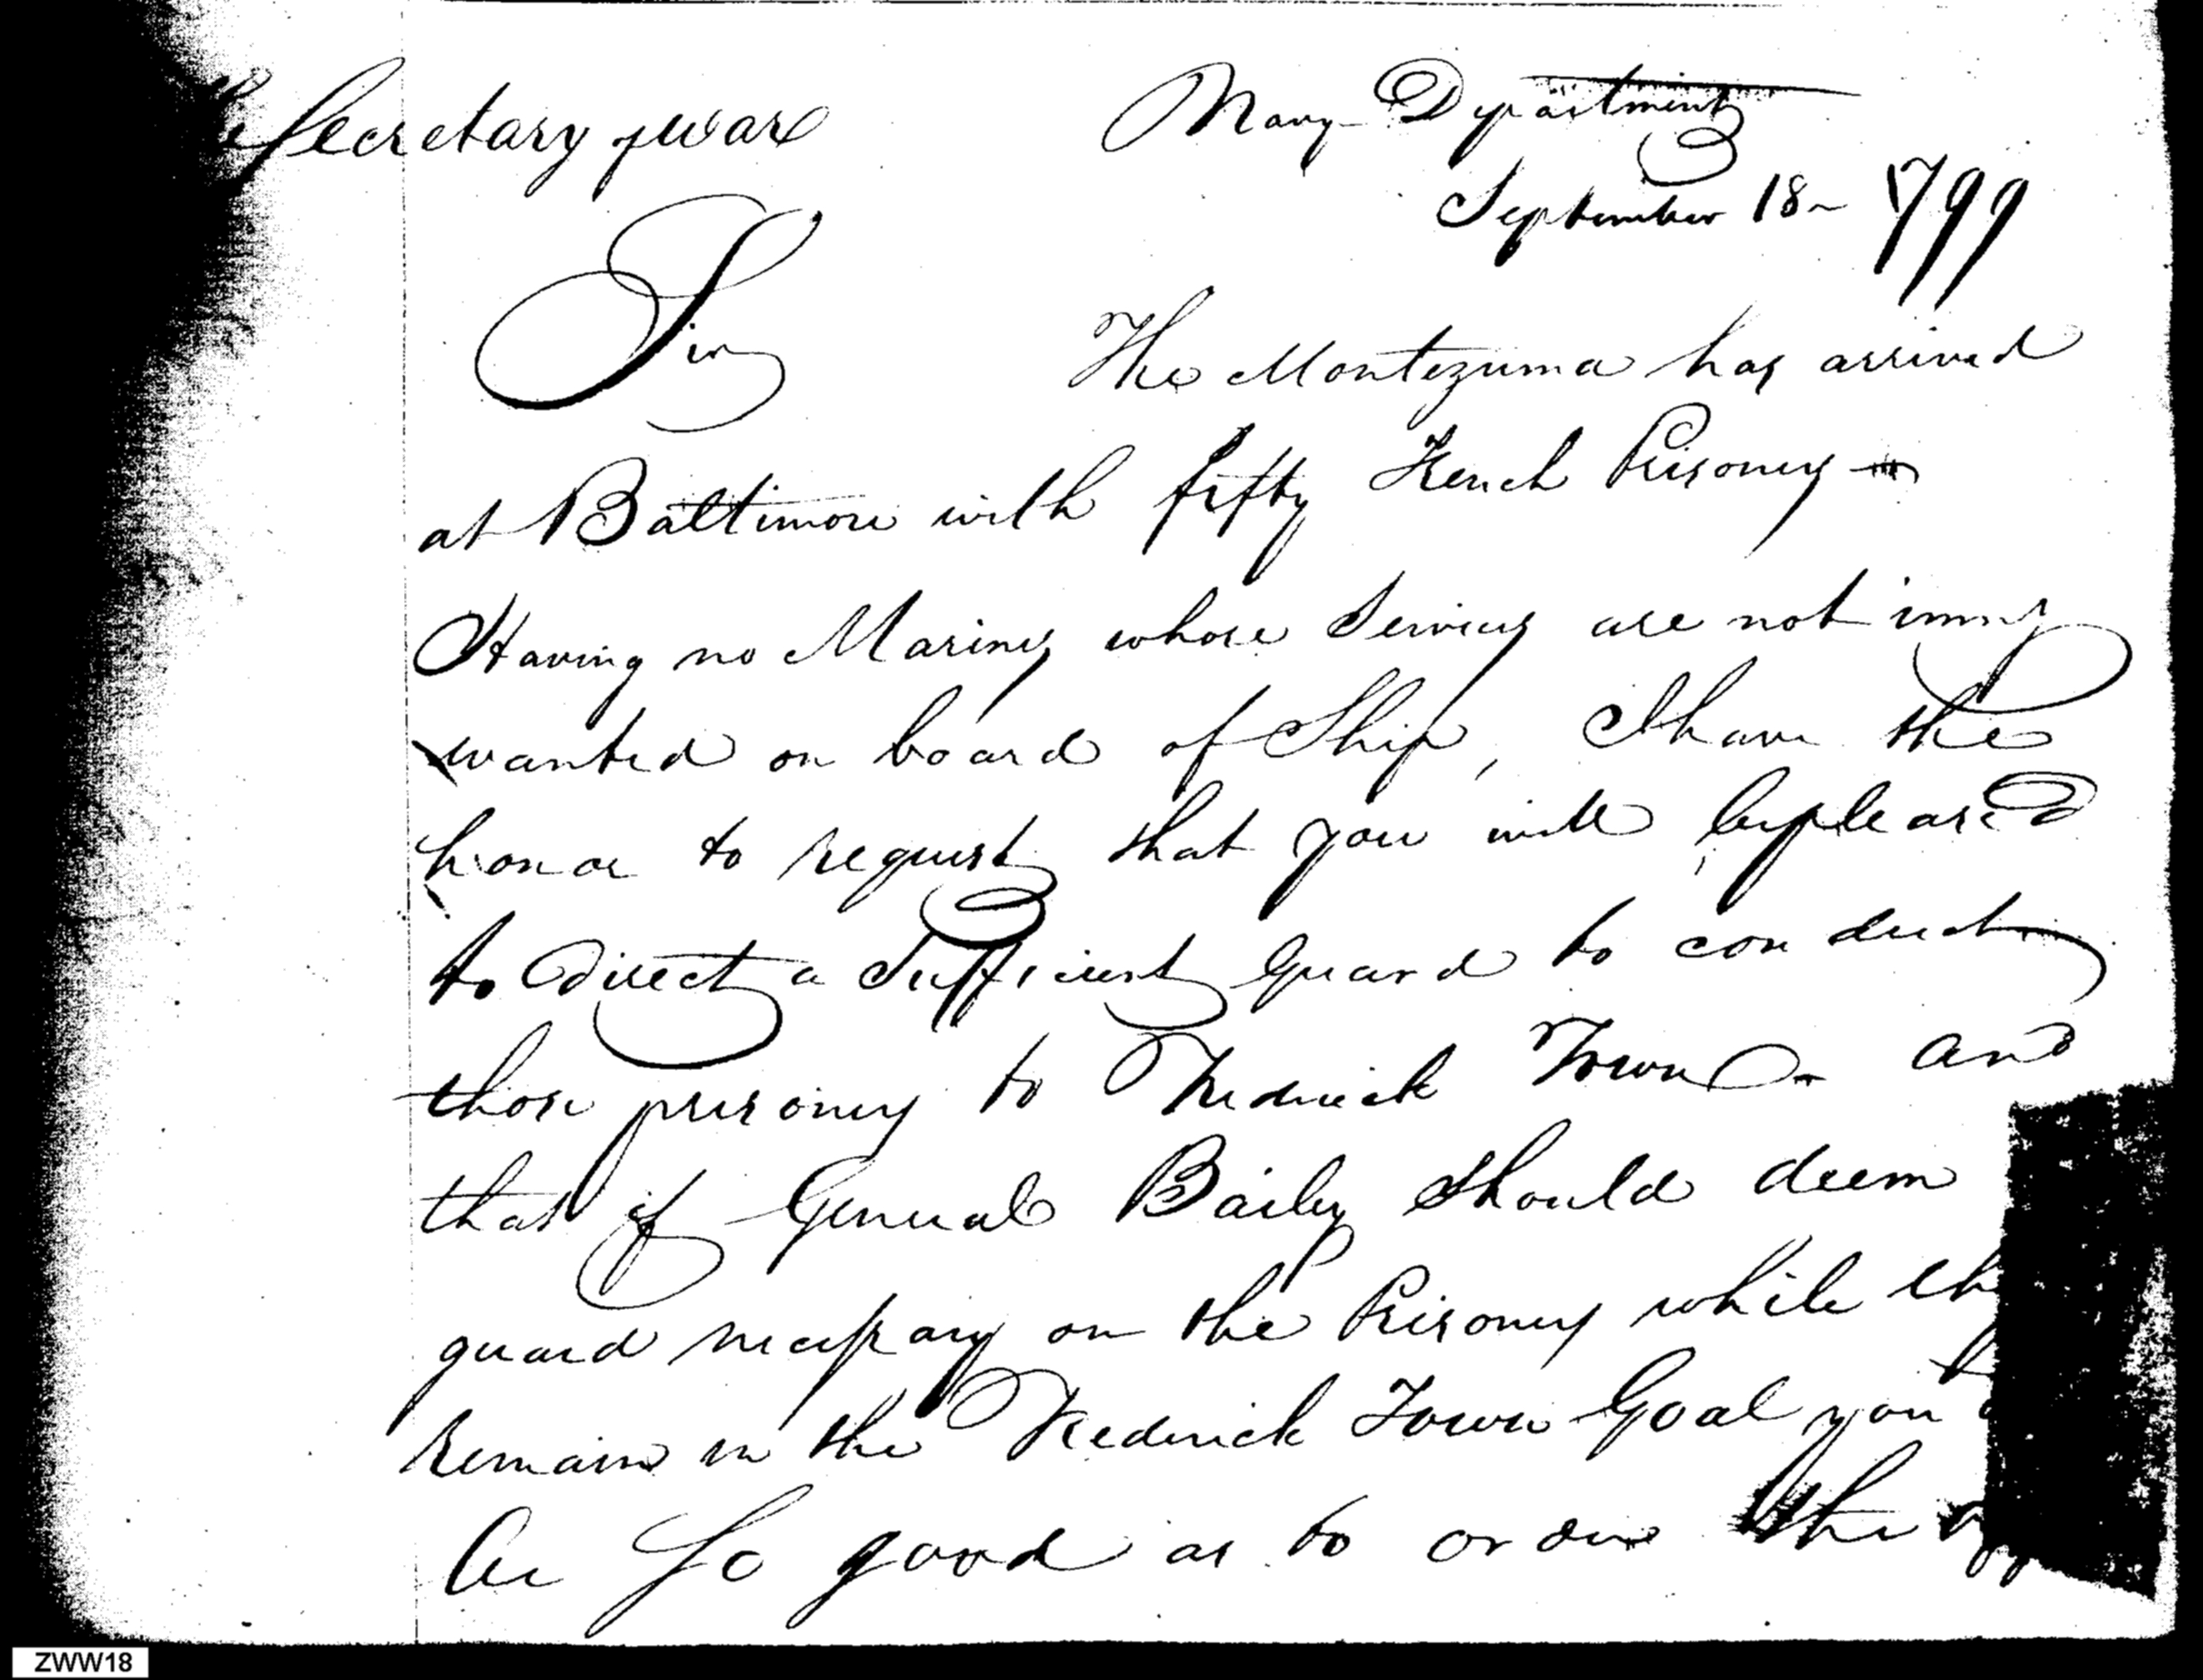 Secretary of War
Navy Department
September 18 - 1799
Sir
The Montezuma has arrived
at Baltimore with fifty French Prisoners
Having no Marines whose Services are not
wanted on board of Ship, I have the
honor to request that you will be pleased
to direct a sufficient Guard to conduct
those prisoners to Frederick Town - and
that if General Baily should deem
guard necessary on the Prisoners while
remain in the Frederick Town Goal you
be so good as to order the
ZWW18